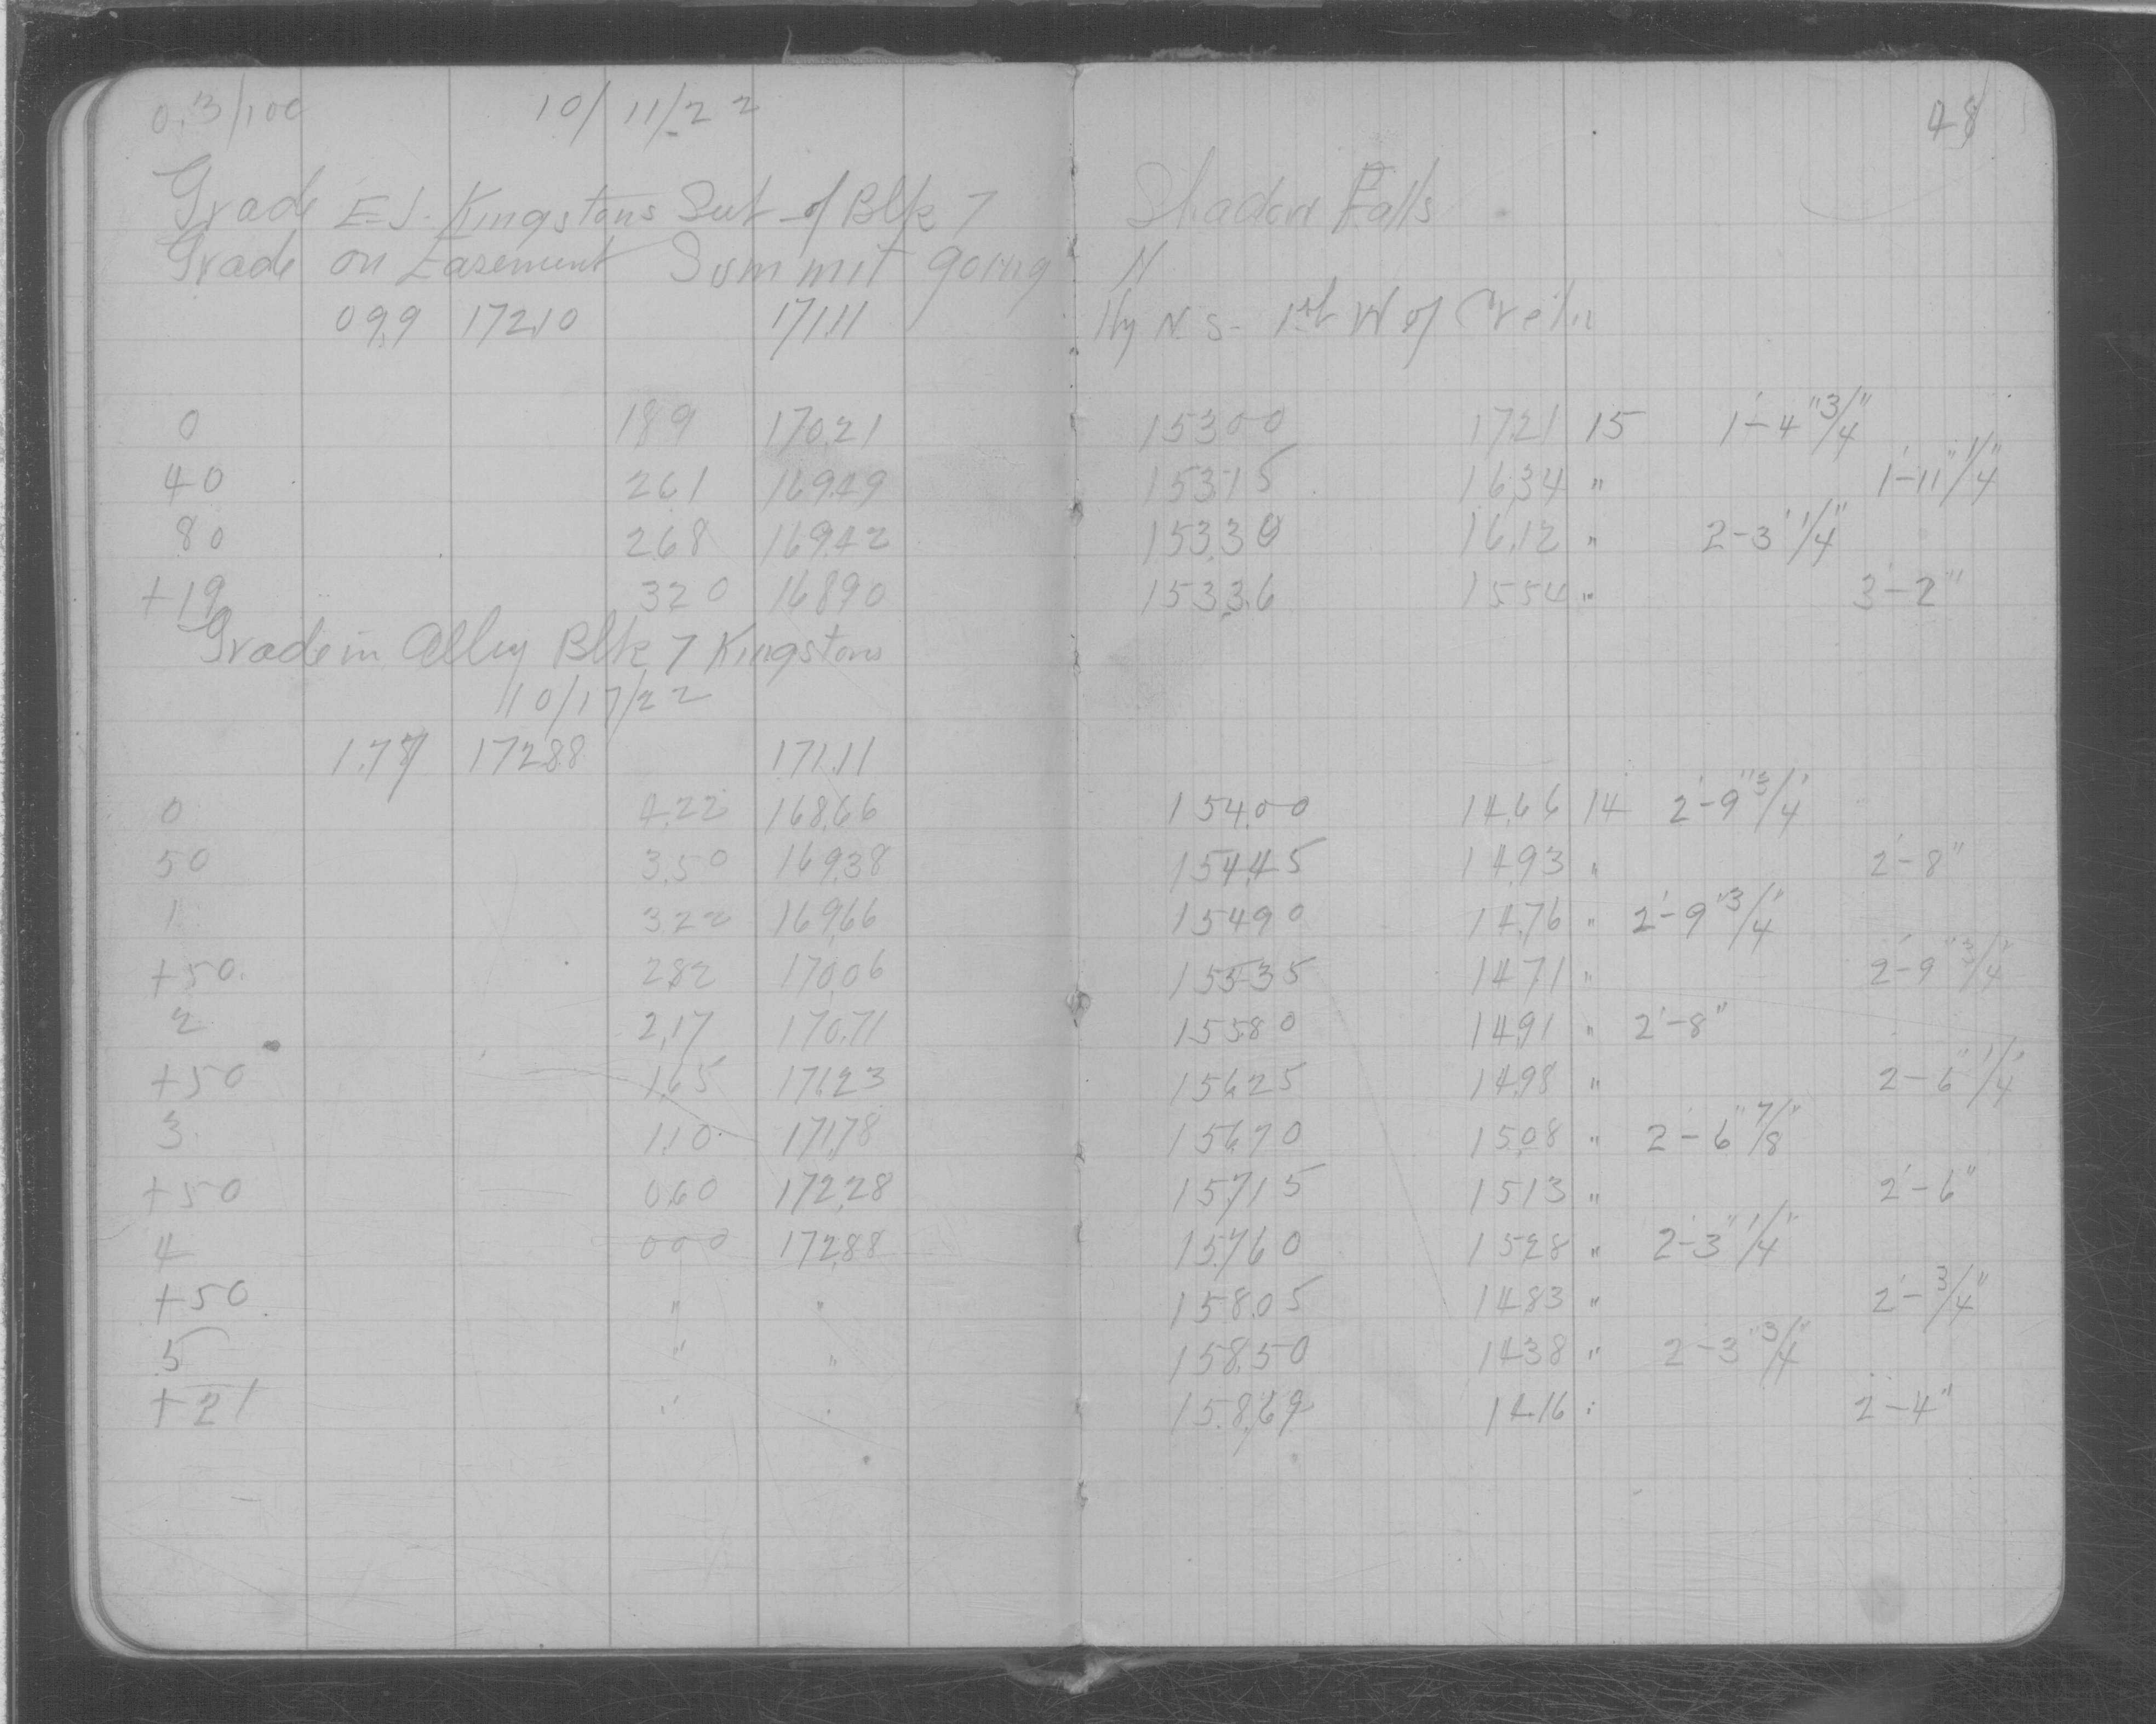 0.3/100 10/11/22 48
Grade E.J. Kingstons Sub of Blk 7 Shadow Falls
Grade on Easement Summit going N
0.99 172.10 171.11 Hy N.S. 1st W of Cretin
0 1.89 170.21 153.00 17.21 15 1'-4"3/4"
40 2.61 169.49 153.15 16.34 " 1'-11"1/4"
80 2.68 169.42 153.30 16.12 " 2-3'1/4"
+19 3.20 168.90 153.36 15.54 " 3'-2"
Grade in Alley Blk 7 Kingstons
10/17/22
1.77 172.88 171.11
0 4.22 168.66 154.00 14.66 14 2'-9"3/4'
50 3.50 169.38 154.45 14.93 " 2'-8"
1 3.22 169.66 154.90 14.76 " 2'-9"3/4"
+50 2.82 170.06 155.35 14.71 " 2'-9"3/4"
2 2.17 170.71 155.80 14.91 " 2'-8"
+50 1.65 171.23 156.25 14.98 " 2-6"1/4"
3 1.10 171.78 156.70 15.08 " 2'-6"7/8"
+50 0.60 172.28 157.15 15.13 " 2'-6"
4 0.00 172.88 157.60 15.28 " 2'-3"1/4"
+50 " " 158.05 14.83 " 2'-3/4"
5 " " 158.50 14.38 " 2'-3"3/4"
+21 " " 158.69 14.16 " 2'-4"